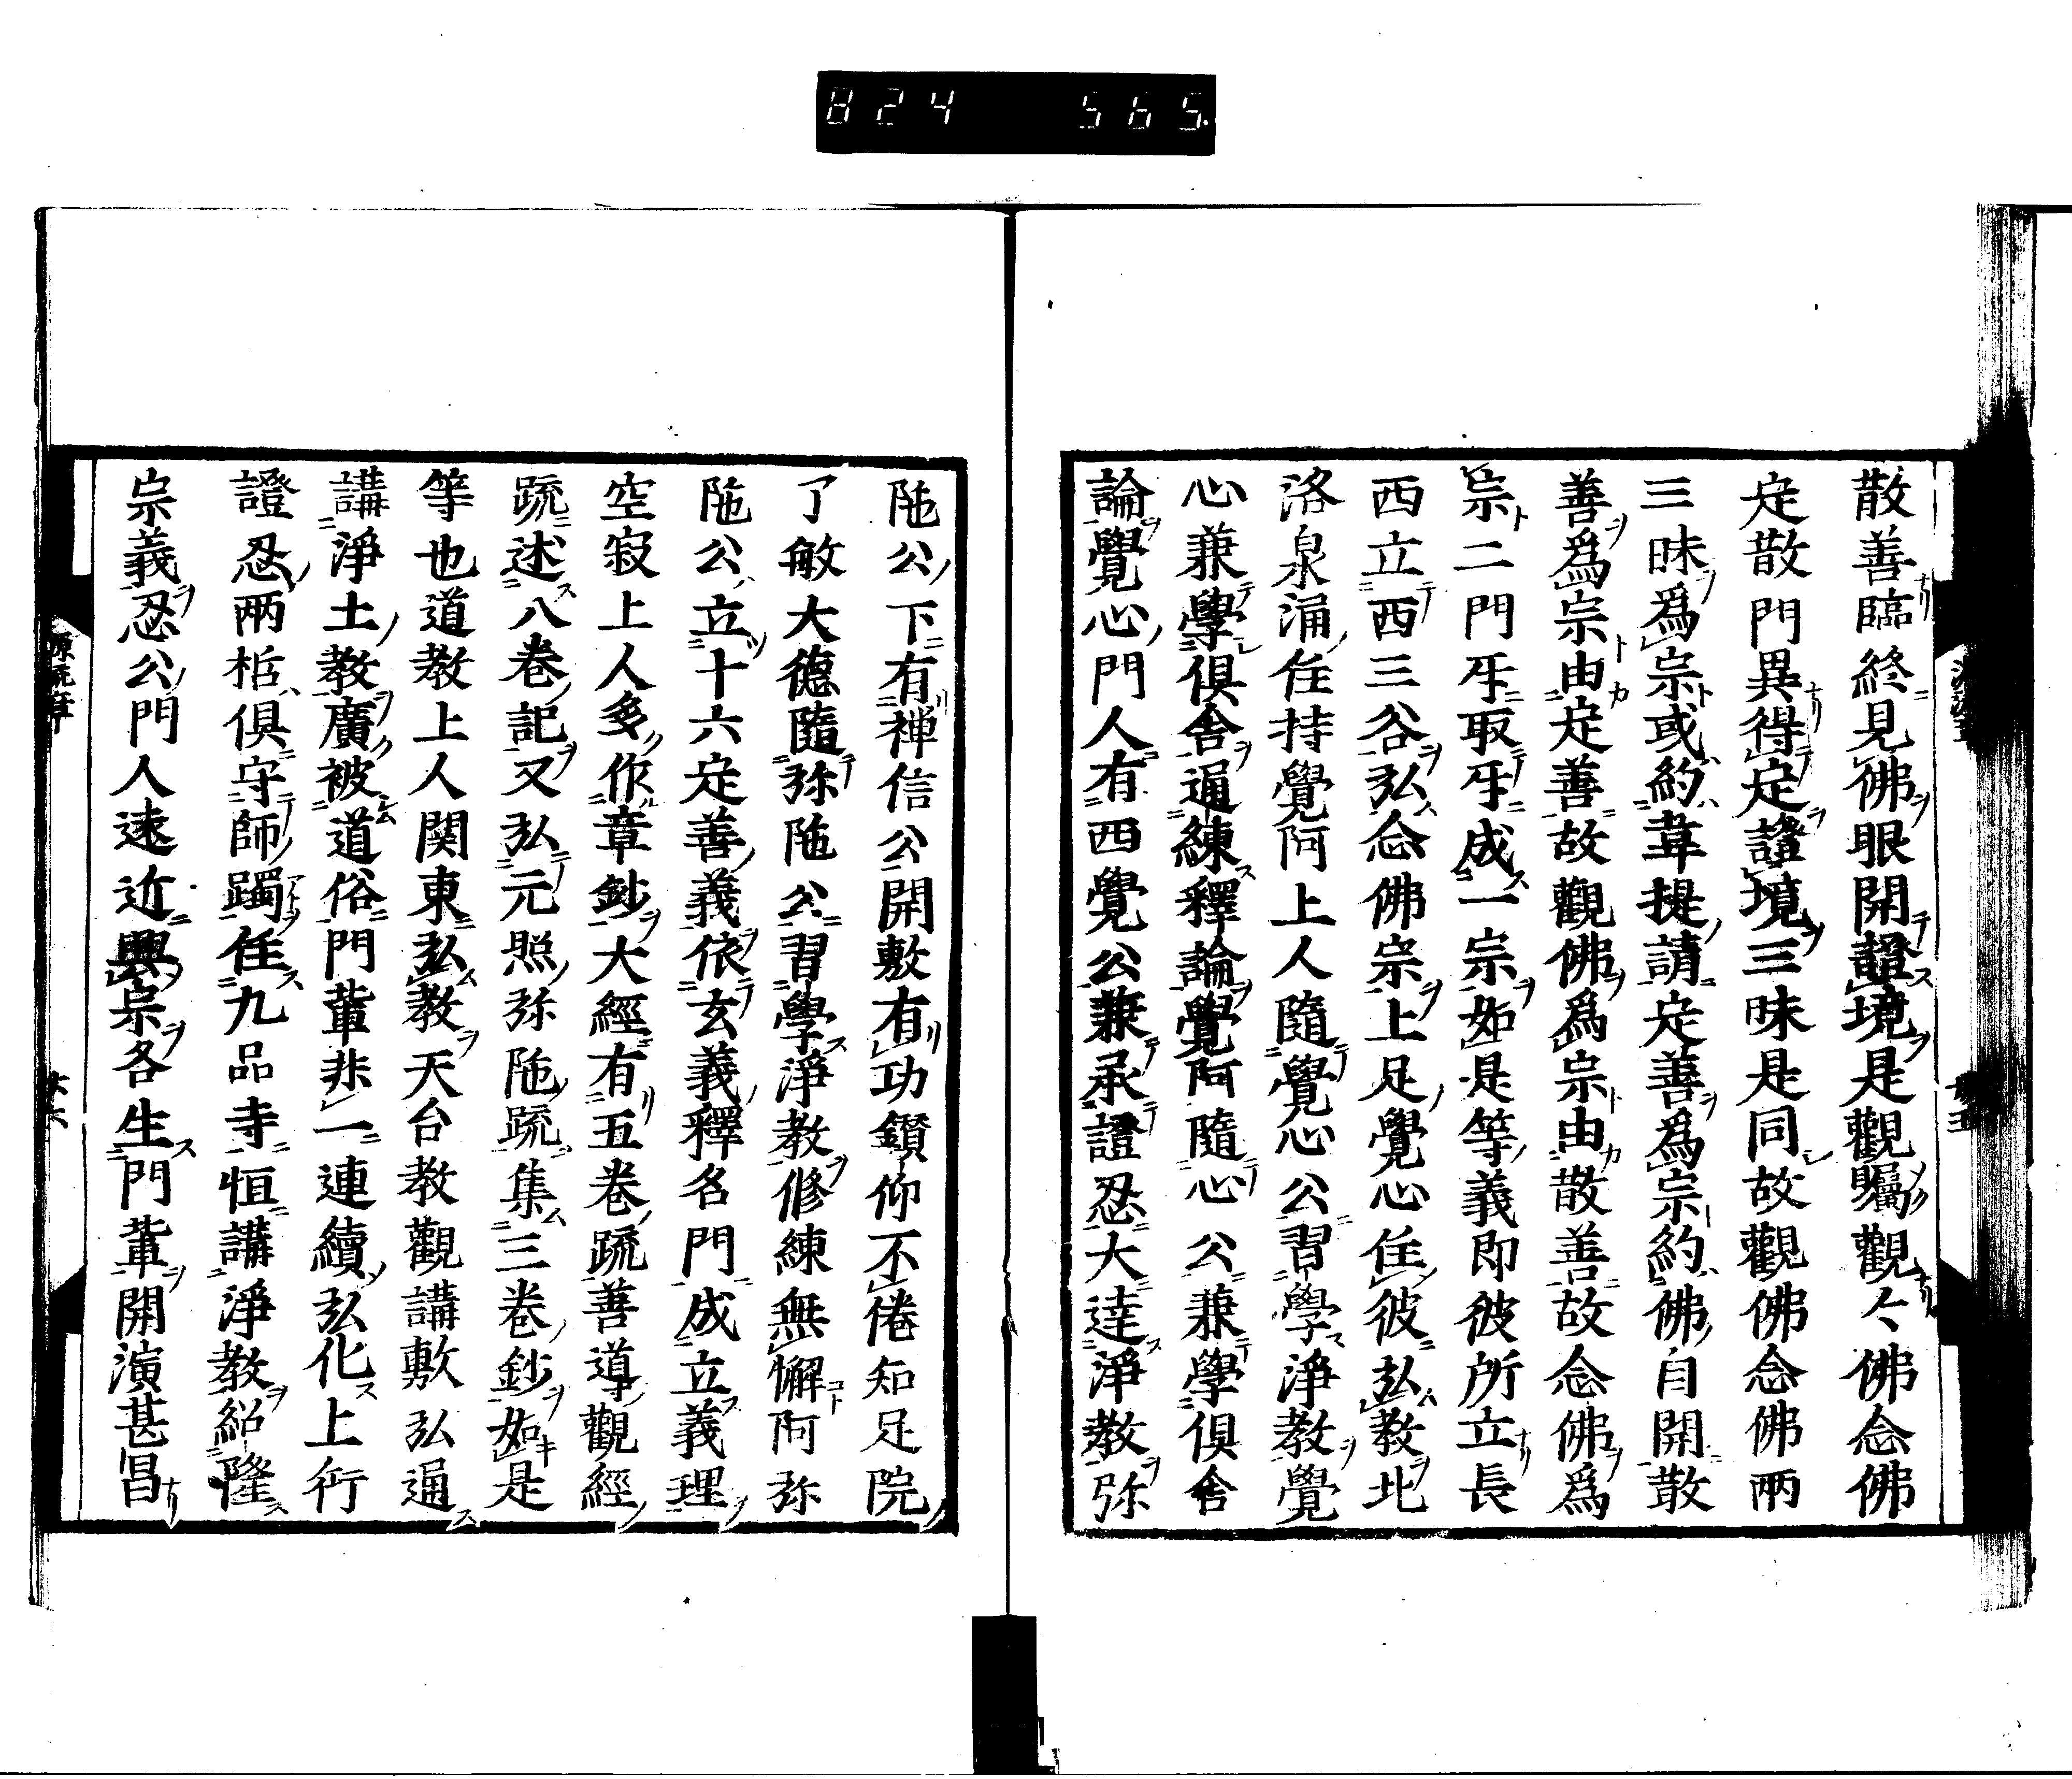 824 565.
散善臨終見佛眼開證境是觀矚觀々佛念佛
定散門異得定證境三昧是同故觀佛念佛兩
三昧爲宗或約韋提請定善爲宗約佛自開散
善爲宗由定善故觀佛爲宗由散善故念佛爲
宗二門互取互成一宗如是等義即彼所立長
西立西三谷弘念佛宗上足覺心住彼弘教北
洛泉涌住持覺阿上人隨覺心公習學淨教覺
心兼學俱舍通練釋論覺阿隨心公兼學俱舍
論覺心門人有西覺公兼承證忍大達淨教弥
陁公下有禅信公開敷有功鑚仰不倦知足院
了敏大德隨弥陁公習學淨教修練無懈阿弥
陁公立十六定善義依玄義釋名門成立義理
空寂上人多作章鈔大經有五卷疏善導觀經
疏述八卷記又弘元照弥陁疏集三卷鈔如是
等也道教上人関東弘教天台教觀講敷弘通
講淨土教廣被道俗門葷非一連續弘化上衍
證忍兩哲俱守師躅住九品寺恒講淨教紹隆
宗義忍公門人遠近興宗各生門葷開演甚昌